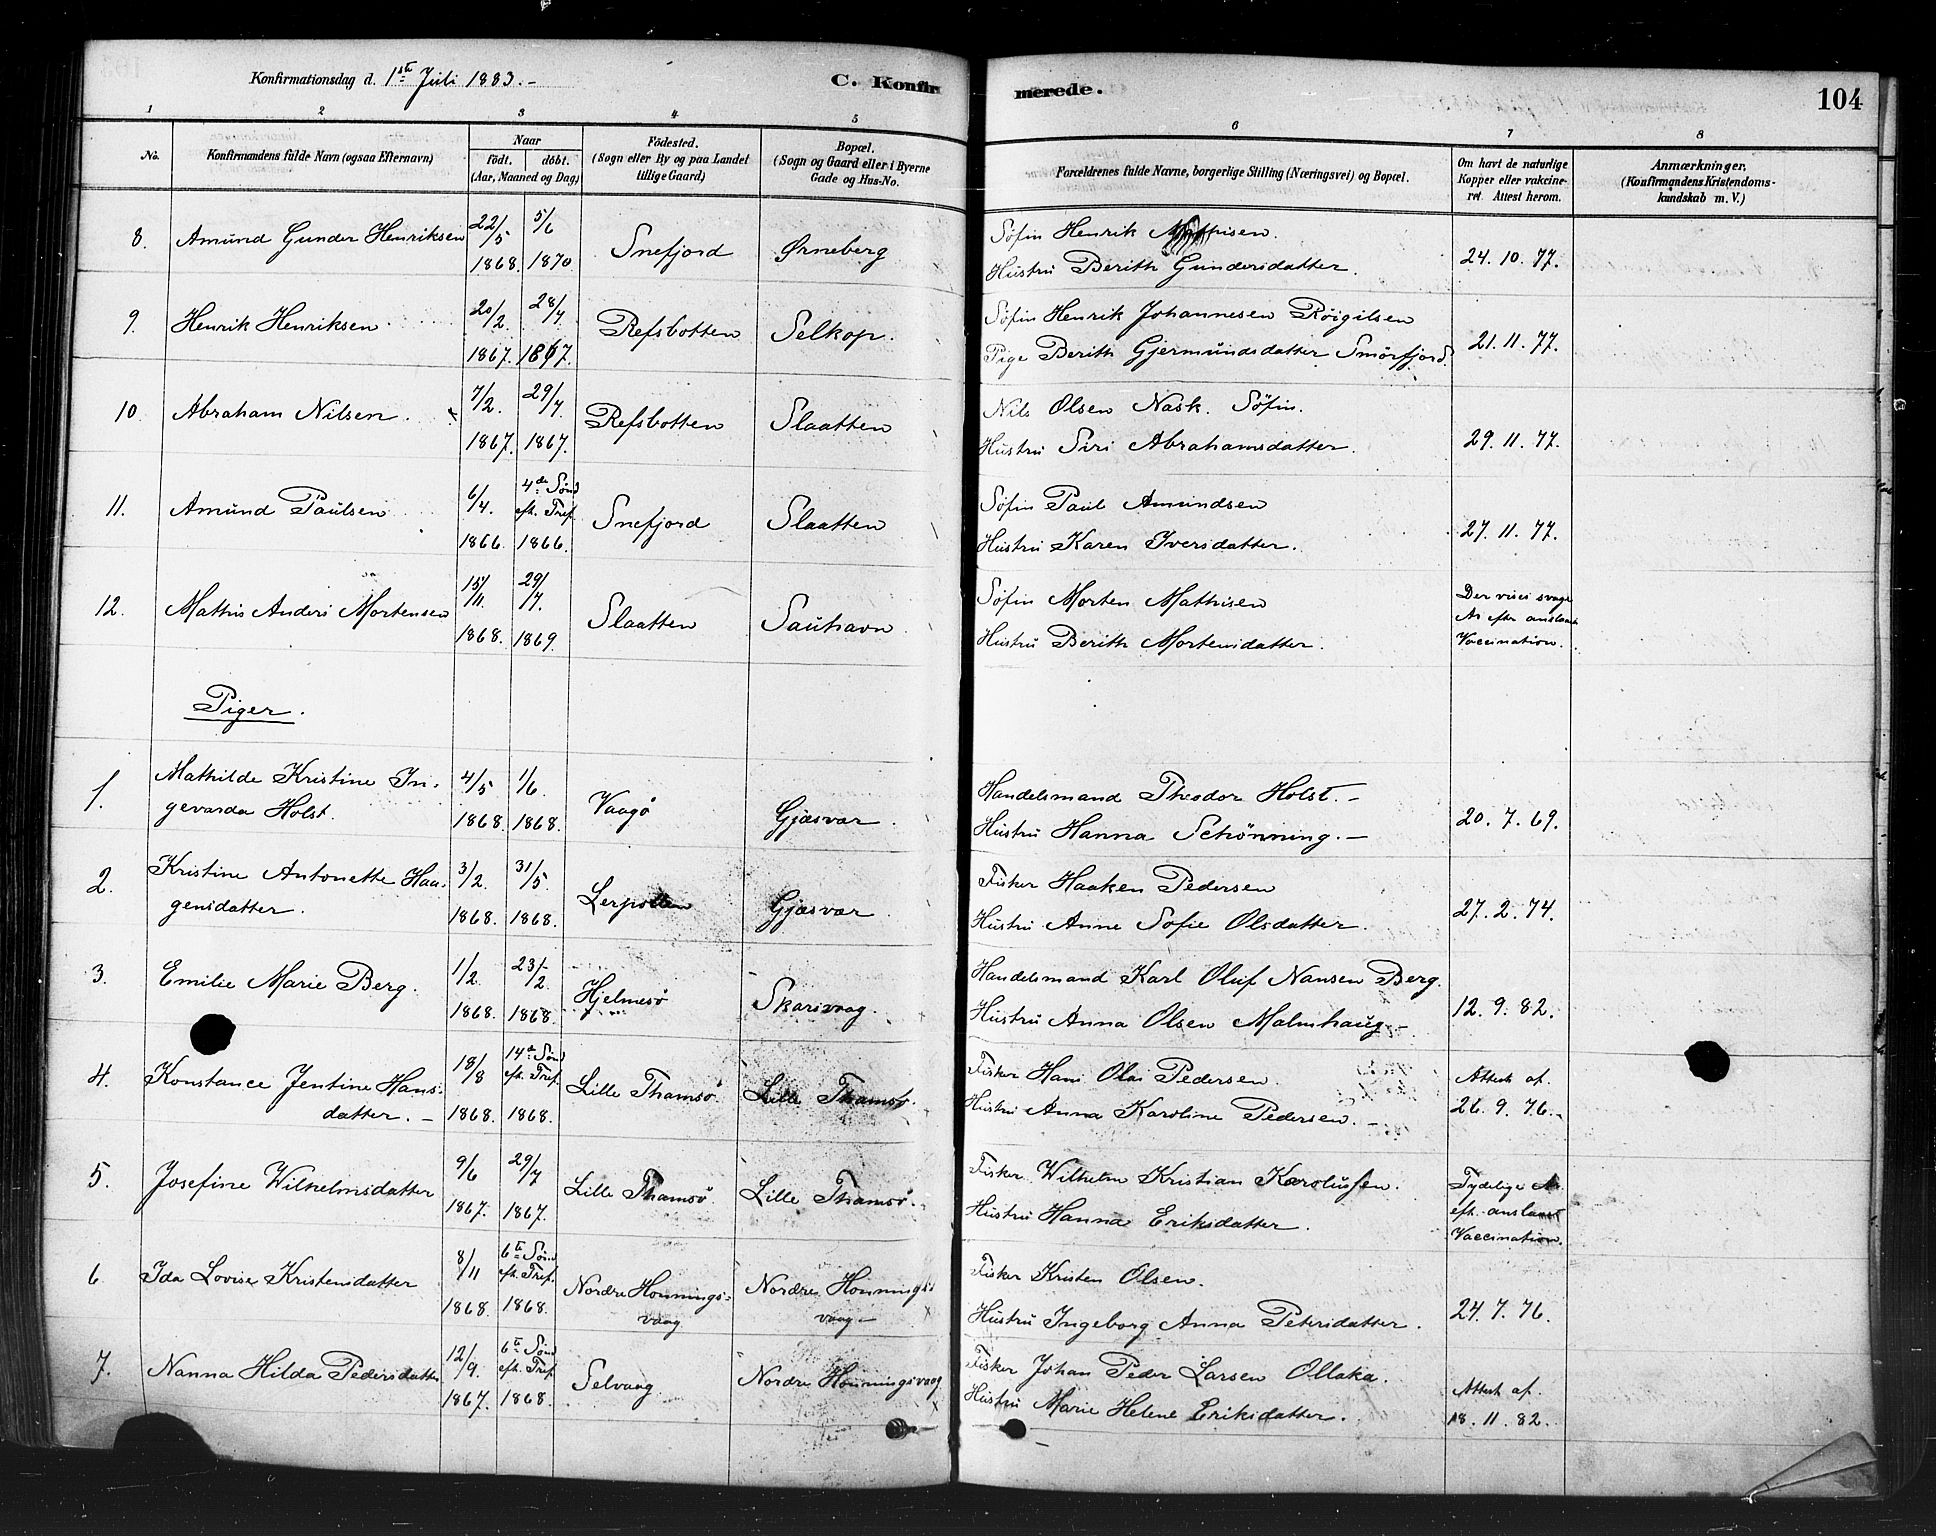 Konfirmationsdag d. 1ste Juli 1883. -
C. Konfirmerede.
104
1 2 3 4 5 6 7 8
No.
Konfirmandens fulde Navn (ogsaa Efternavn)
Naar
födt. döbt.
(Aar, Maaned og Dag)
Födested.
(Sogn eller By og paa Landet
tillige Gaard)
Bopæl.
(Sogn og Gaard eller i Byerne
Gade og Hus-No.
Forældrenes fulde Navne, borgerlige Stilling (Næringsvei) og Bopæl.
Om havt de naturlige
Kopper eller vakcine-
ret. Attest herom.
Anmærkninger,
(Konfirmandens Kristendoms-
kundskab m. V.)
8. Amund Gunder Henriksen 22/5 1868. 5/6 1870 Snefjord Ørneberg
Söfin Henrik Mathisen.
Hustru Berith Gundersdatter. 24. 10. 77.
9. Henrik Henriksen 20/2. 1867. 28/7. 1867. Refsbotten Selkop.
Söfin Henrik Johannesen Röigilsen
Pige Berith Gjermundsdatter Smörfjord. 21. 11. 77.
10. Abraham Nilsen. 7/2. 1867. 29/7. 1867. Refsbotten Slaatten
Nils Olsen Nask. Söfin.
Hustru Siri Abrahamsdatter. 29. 11. 77.
11. Amund Paulsen 6/4. 1866. 4de Sönd eft. Tref. 1866. Snefjord Slaatten
Söfin Paul Amundsen
Hustru Karen Iversdatter. 27. 11. 77.
12. Mathis Anders Mortensen 15/11. 1868. 29/7. 1869. Slaatten Sauhavn.
Söfin Morten Mathisen
Hustru Berith Mortensdatter.
Der vises svage
Ar efter anslaaet
Vaccination.
Piger.
1. Mathilde Kristine In-
gevarda Holst. 4/5 1868. 1/6. 1868. Vaagö Gjæsvær.
Handelsmand Theodor Holst. -
Hustru Hanna Schönning. - 20. 7. 69.
2. Kristine Antonette Haa-
gensdatter. 3/2. 1868. 31/5. 1868. Lerpollen Gjæsvær.
Fisker Haaken Pedersen
Hustru Anne Sofie Olsdatter. 27. 2. 74.
3. Emilie Marie Berg. 1/2. 1868. 23/2. 1868. Hjelmesö Skarsvaag.
Handelsmand Karl Oluf Nansen Berg.
Hustru Anna Olsen Malmhaug. - 12. 9. 82.
4. Konstance Jentine Hans-
datter. - 18/8 1868. 14de Sönd eft. Tref. 1868. Lille Thamsö Lille Thamsö.
Fisker Hans Olai Pedersen.
Hustru Anna Karoline Pedersen. -
Attest af.
26. 9. 76.
5. Josefine Wilhelmsdatter 9/6 1867. 29/7 1867. Lille Thamsö Lille Thamsö.
Fisker Wilhelm Kristian Karolussen.
Hustru Hanna Eriksdatter.
Tydelige Ar
eft. anslaaet
Vaccination.
6 Ida Lovise Kristensdatter 8/11 1868. 6te Sönd eft. Tref. 1868. Nordre Honnings-
vaag. Nordre Honnings-
vaag -
Fisker Kristen Olsen.
Hustru Ingeborg Anna Petersdatter. 24. 7. 76.
7. Nanna Hilda Pedersdatter 12/9. 1867. 6te Sönd eft. Tref. 1868. Selvaag. Nordre Honningsvaag
Fisker Johan Peder Larsen Ollaka.
Hustru Marie Helene Eriksdatter.
Attest af.
18. 11. 82.